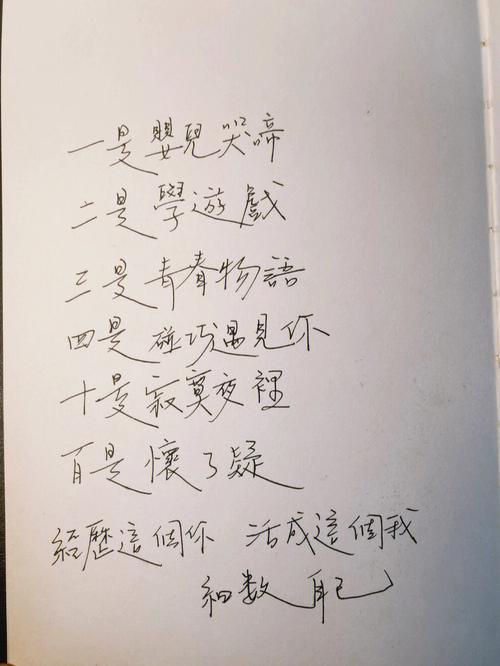 一是嬰兒哭啼
二是學遊戲
三是青春物語
四是碰巧遇見你
十是寂寞夜裡
百是懷了疑
經歷這個你 活成這個我
細数自己